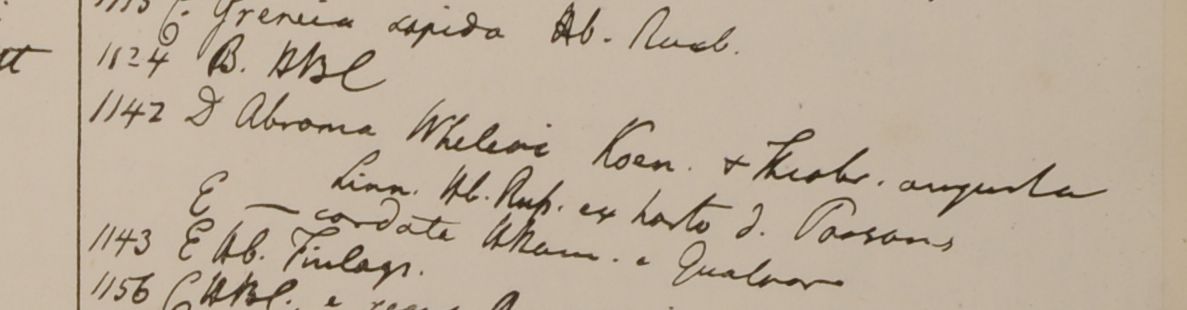 1113 C. Grewia sapida Hb. Roxb.
1124 B. HBC
1142 D Abroma Wheleri Koen. & Theobr. augusta
Linn. Hb. Rup. ex horto d. Parsons
E — cordata Ham. e Gualpara
1143 E Hb. Finlays.
1156 C HBC. e